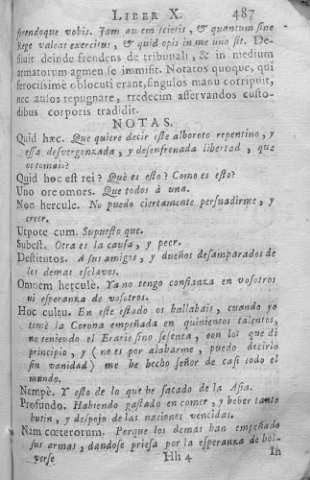 LIBER X. 487
frendoque vobis. Jam autem scietis, & quantum sine
Rege valeat exercitus, & quid opis in me uno sit. De-
siluit deinde frendens de tribunali, & in medium
armatorum agmen se immisit. Notatos quoque, qui
ferocissime oblocuti erant, singulos manu corripuit,
nec ausos repugnare, tredecim asservandos custo-
dibus corporis tradidit.
NOTAS.
Quid hæc. Que quiere decir este alboroto repentino, y
essa desvergonzada, y desenfrenada libertad, que
os tomais?
Quid hoc est rei? Què es esto? Como es esto?
Uno ore omnes. Que todos à una.
Non hercule. No puedo ciertamente persuadirme, y
creer.
Utpote cum. Supuesto que.
Subest. Otra es la causa, y peor.
Destitutos. A sus amigos, y dueños desamparados de
les demas esclavos.
Omnem hercule. Ya no tengo confianza en vosotros
ni esperanza de vosotros.
Hoc cultu. En este estado os hallabais, cuando yo
tomè la Corona empeñada en quinientos talentos,
no teniendo el Erario sino sesenta, con lo que di
principio, y (no es por alabarme, puedo decirlo
sin vanidad) me he hecho señor de casi todo el
mundo.
Nempè. Y esto de lo que he sacado de la Asia.
Profundo. Habiendo gastado en comer, y beber tanto
butin, y despojo de las naciones vencidas.
Nam cœterorum. Porque los demás han empeñado
sus armas, dandose priesa por la esperanza de bol-
verse Hh 4 In